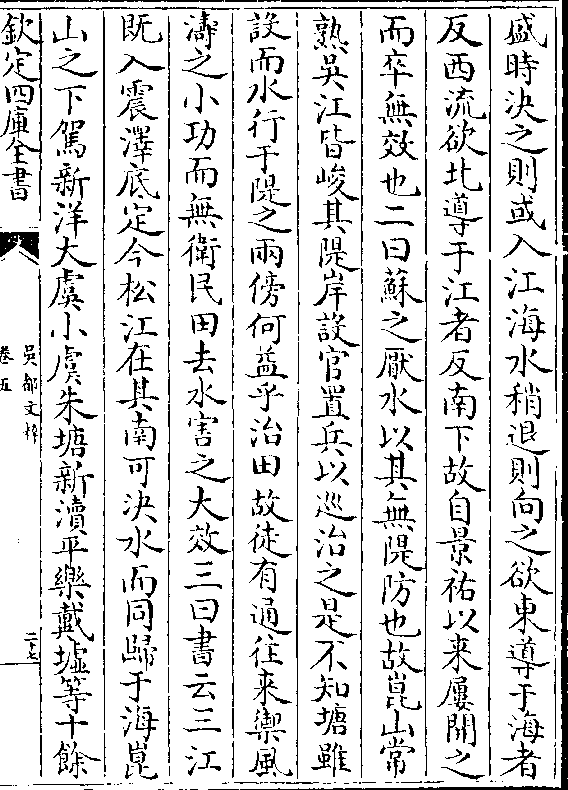 盛時決之則或入江海水稍退則向之欲東導于海者
反西流欲北導于江者反南下故自景祐以来屢開之
而卒無效也二曰蘇之厭水以其無隄防也故崑山常
熟吳江皆峻其隄岸設官置兵以巡治之是不知塘雖
設而水行于隄之兩傍何益乎治田故徒有通往來禦風
濤之小功而無衛民田去水害之大效三曰書云三江
既入震澤底定今松江在其南可決水而同歸于海崑
山之下駕新洋大虞小虞朱塘新瀆平樂戴墟等十餘
欽定四庫全書
吳都文粹
卷五
二十七